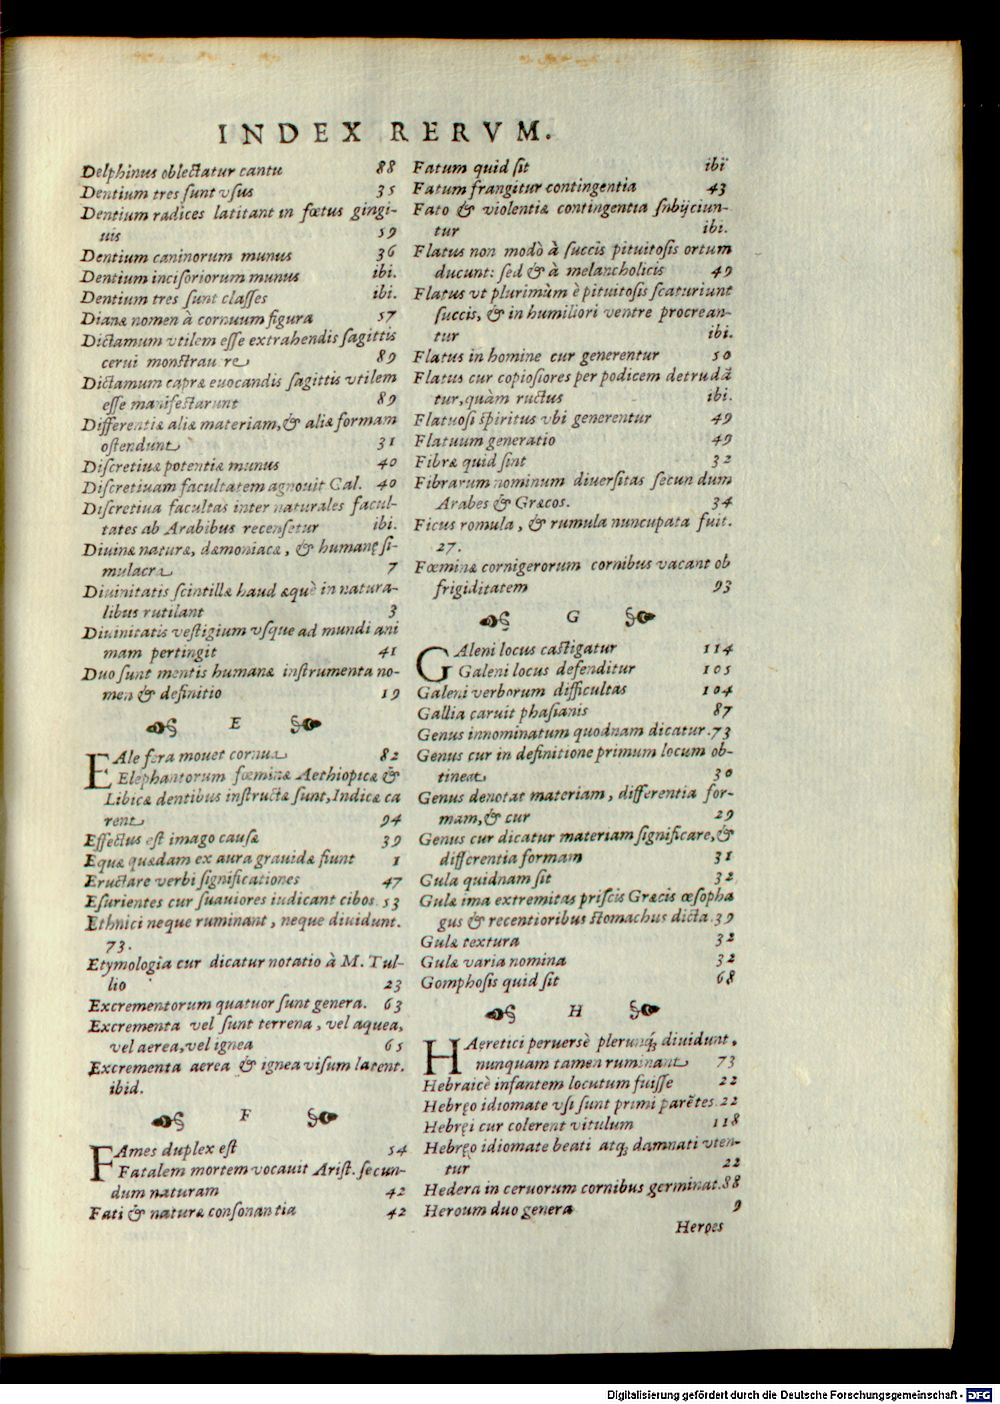 INDEX RERVM.
Delphinus oblectatur cantu 88
Dentium tres sunt vsus 35
Dentium radices latitant in fœtus gingi-
uis 59
Dentium caninorum munus 36
Dentium incisoriorum munus ibi.
Dentium tres sunt classes ibi.
Dianæ nomen à cornuum figura 57
Dictamum vtilem esse extrahendis sagittis
cerui monstrauere 89
Dictamum capræ euocandis sagittis vtilem
esse manifestarunt 89
Differentiæ aliæ materiam, & aliæ formam
ostendunt 31
Discretiuæ potentiæ munus 40
Discretiuam facultatem agnouit Gal. 40
Discretiua facultas inter naturales facul-
tates ab Arabibus recensetur ibi.
Diuinæ naturæ, dæmoniacæ, & humanę si-
mulacra 7
Diuinitatis scintillæ haud æquè in natura-
libus rutilant 3
Diuinitatis vestigium vsque ad mundi ani
mam pertingit 41
Duo sunt mentis humanæ instrumenta no-
men & definitio 19
E
EAle fera mouet cornua 82
Elephantorum fœminæ Aethiopicæ &
Libicæ dentibus instructæ sunt, Indicæ ca
rent 94
Effectus est imago causæ 39
Equæ quædam ex aura grauidæ fiunt 1
Eructare verbi significationes 47
Esurientes cur suauiores iudicant cibos 53
Ethnici neque ruminant, neque diuidunt.
73.
Etymologia cur dicatur notatio à M. Tul-
lio 23
Excrementorum quatuor sunt genera. 63
Excrementa vel sunt terrena, vel aquea,
vel aerea, vel ignea 65
Excrementa aerea & ignea visum latent.
ibid.
F
FAmes duplex est 54
Fatalem mortem vocauit Arist. secun-
dum naturam 42
Fati & naturæ consonantia 42
Fatum quid sit ibi
Fatum frangitur contingentia 43
Fato & violentiæ contingentia subijciun-
tur ibi.
Flatus non modò à succis pituitosis ortum
ducunt: sed & à melancholicis 49
Flatus vt plurimùm è pituitosis scaturiunt
succis, & in humiliori ventre procrean-
tur ibi.
Flatus in homine cur generentur 50
Flatus cur copiosiores per podicem detrudã
tur, quàm ructus ibi.
Flatuosi spiritus vbi generentur 49
Flatuum generatio 49
Fibræ quid sint 32
Fibrarum nominum diuersitas secundum
Arabes & Græcos. 34
Ficus romula, & rumula nuncupata fuit.
27.
Fœminæ cornigerorum cornibus vacant ob
frigiditatem 93
G
GAleni locus castigatur 114
Galeni locus defenditur 105
Galeni verborum difficultas 104
Gallia caruit phasianis 87
Genus innominatum quodnam dicatur. 73
Genus cur in definitione primum locum ob-
tineat 30
Genus denotat materiam, differentia for-
mam, & cur 29
Genus cur dicatur materiam significare, &
differentia formam 31
Gula quidnam sit 32
Gulæ ima extremitas priscis Græcis œsopha
gus & recentioribus stomachus dicta. 39
Gulæ textura 32
Gulæ varia nomina 32
Gomphosis quid sit 68
H
HAeretici peruersè plerunq; diuidunt,
nunquam tamen ruminant 73
Hebraicè infantem locutum fuisse 22
Hebręo idiomate vsi sunt primi parẽtes. 22
Hebręi cur colerent vitulum 118
Hebręo idiomate beati atq; damnati vten-
tur 22
Hedera in ceruorum cornibus germinat. 88
Heroum duo genera 9
Heroes
Digitalisierung gefördert durch die Deutsche Forschungsgemeinschaft - DFG